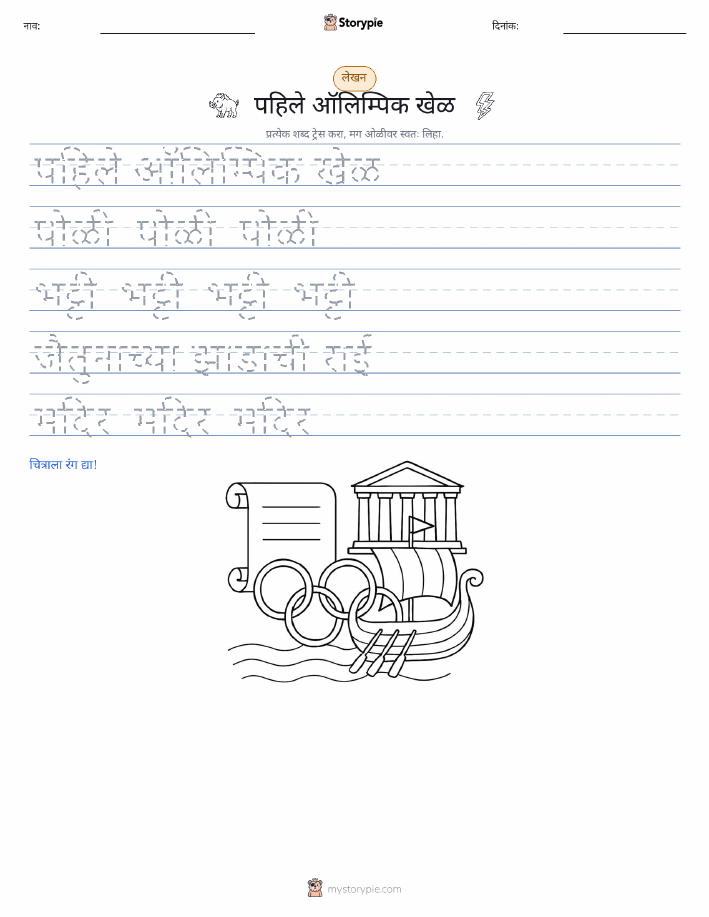 नाव:
Storypie
दिनांक:
लेखन
पहिले ऑलिम्पिक खेळ
प्रत्येक शब्द ट्रेस करा, मग ओळीवर स्वतः लिहा.
पहिले ऑलिम्पिक खेळ
पोळी पोळी पोळी
भट्टी भट्टी भट्टी भट्टी
जैतुनाच्या झाडाची राई
मंदिर मंदिर मंदिर
चित्राला रंग द्या!
mystorypie.com